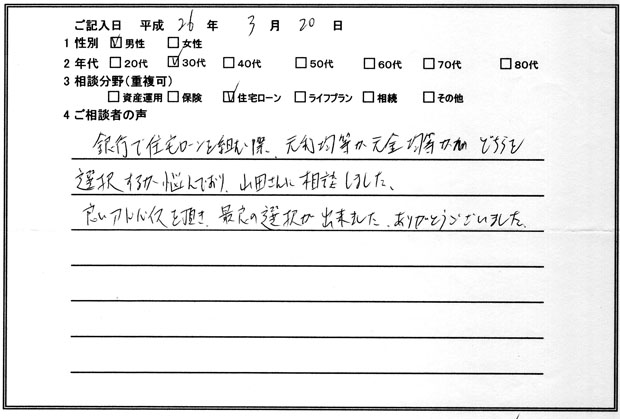 ご記入日 平成 26 年 3 月 20 日
1 性別 ☑男性 □女性
2 年代 □20代 ☑30代 □40代 □50代 □60代 □70代 □80代
3 相談分野(重複可)
□資産運用 □保険 ☑住宅ローン □ライフプラン □相続 □その他
4 ご相談者の声
銀行で住宅ローンを組む際、元利均等か元金均等かの どちらを
選択するか悩んでおり、山田さんに相談しました。
良いアドバイスを頂き、最良の選択が出来ました。ありがとうございました。